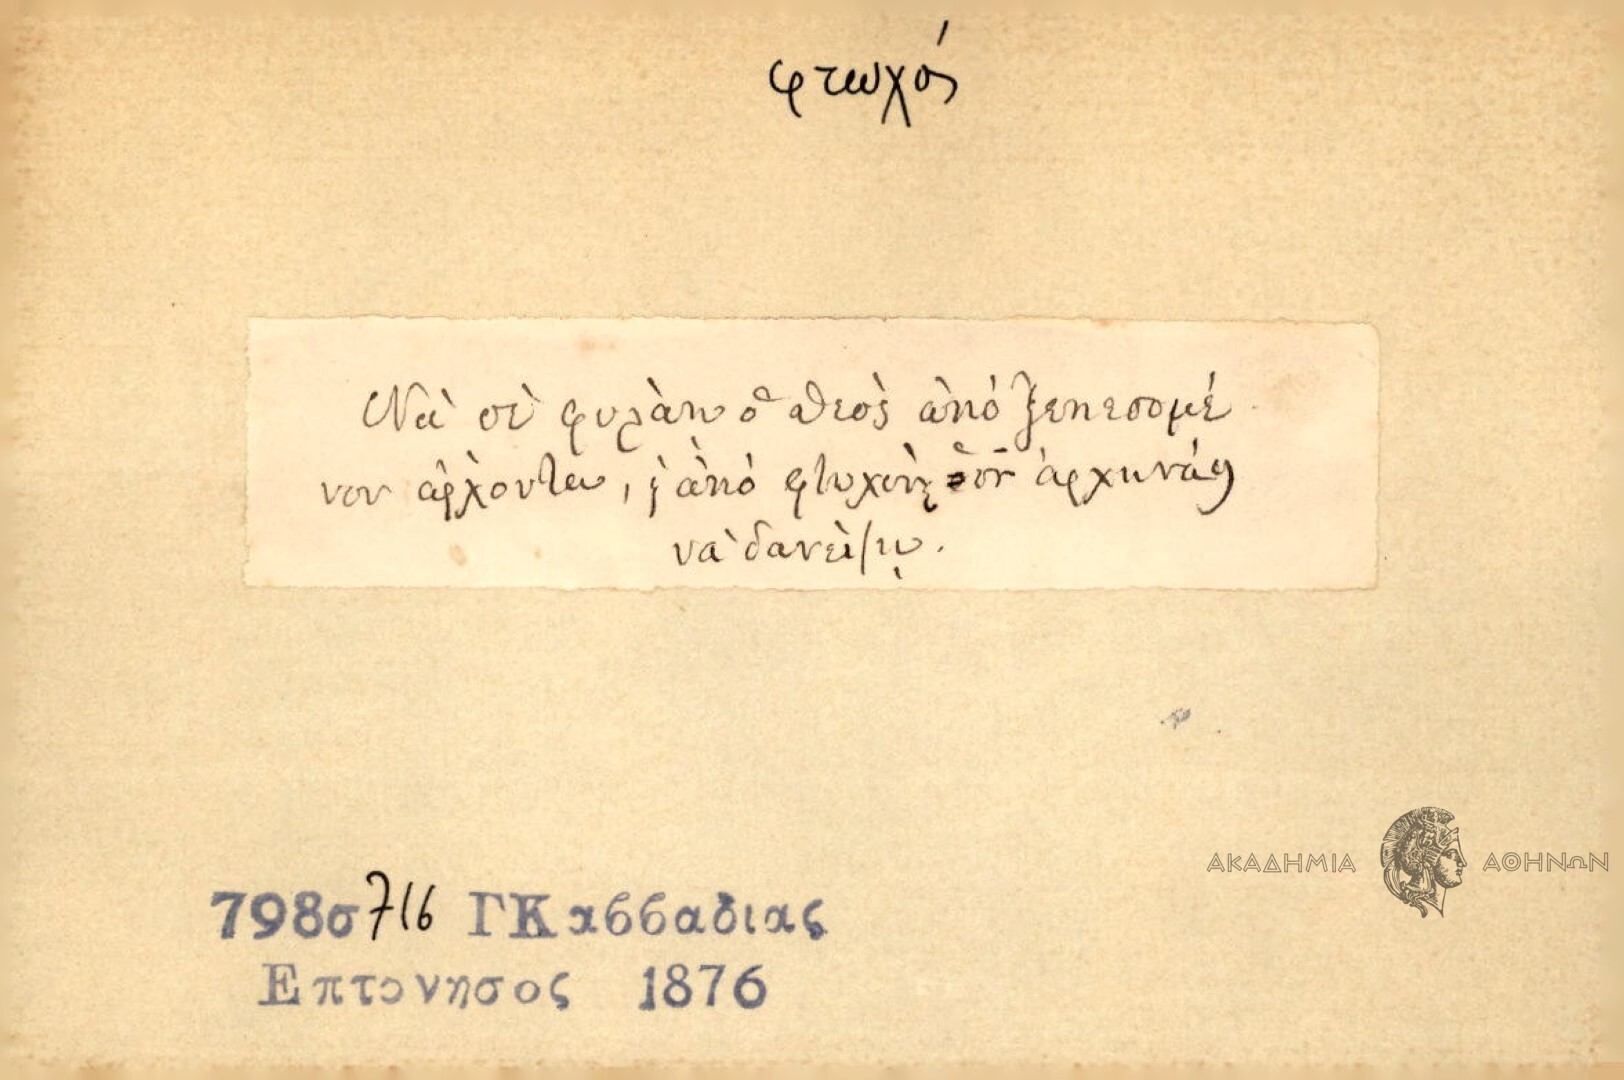 φτωχός
Νὰ σὲ φυλάῃ ὁ θεὸς ἀπό ξεπεσομέ
νον ἀρχοντα, κ ἀπό φτωχὸν ἀρχινάῃ
νὰ δανείζῃ.
798σ716 ΓΚαββαδιας
Επτονησος 1876
ΑΚΑΔΗΜΙΑ ΑΘΗΝΩΝ